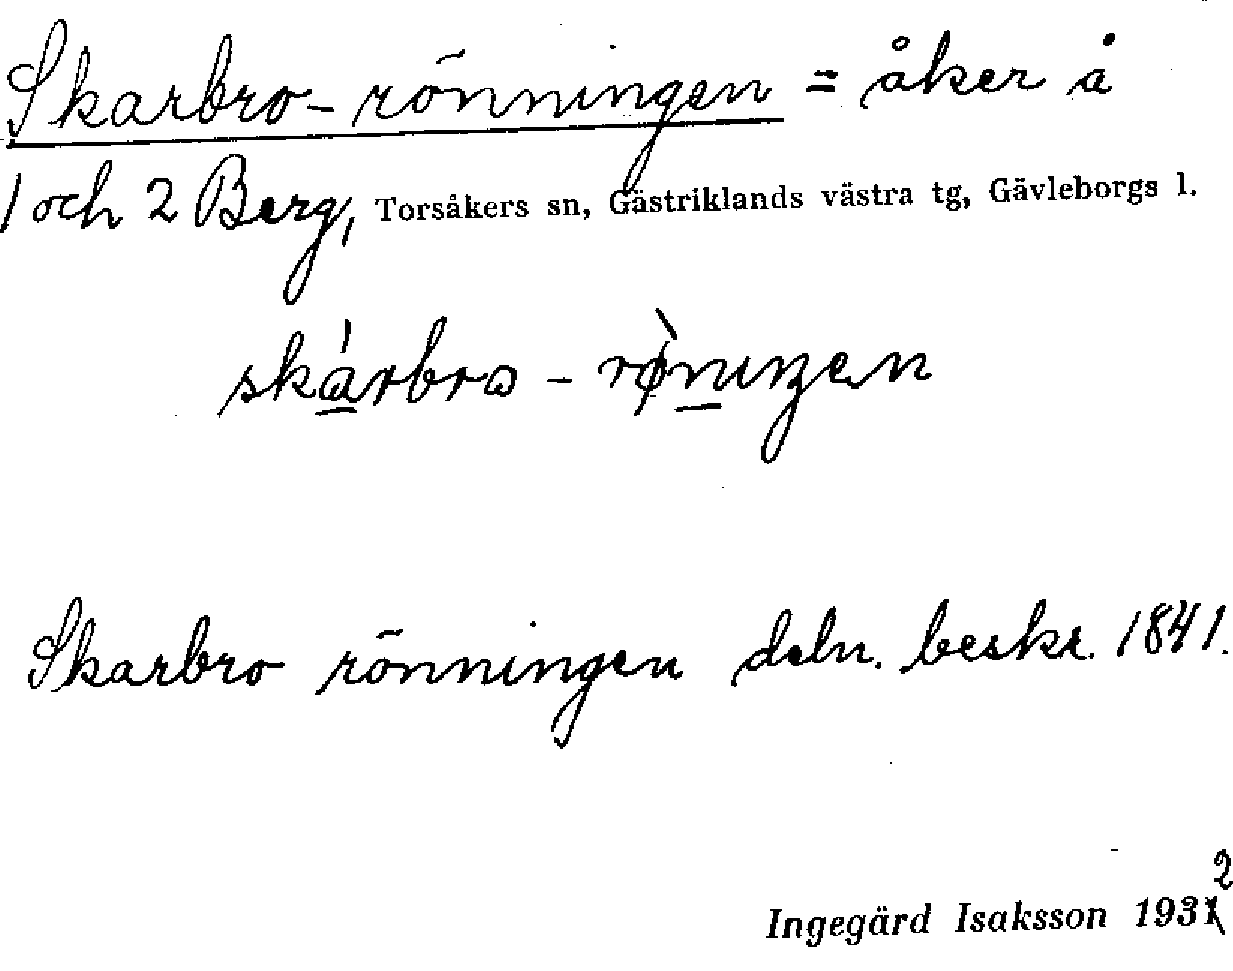 Skarbro-rönningen = åker å
1 och 2 Berg, Torsåkers sn, Gästriklands västra tg, Gävleborgs l.
skárbro - rø̀nıŋen
Skarbro rönningen deln. beskr. 1841.
Ingegärd Isaksson 1932